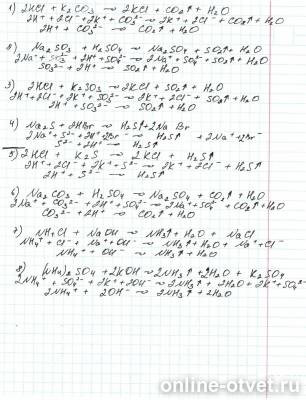 1) 2HCl + K2CO3 → 2KCl + CO2↑ + H2O
2H⁺ + 2Cl⁻ + 2K⁺ + CO3²⁻ → 2K⁺ + 2Cl⁻ + CO2↑ + H2O
2H⁺ + CO3²⁻ → CO2↑ + H2O
2) Na2SO3 + H2SO4 → Na2SO4 + SO2↑ + H2O
2Na⁺ + SO3²⁻ + 2H⁺ + SO4²⁻ → 2Na⁺ + SO4²⁻ + SO2↑ + H2O
SO3²⁻ + 2H⁺ → SO2↑ + H2O
3) 2HCl + K2SO3 → 2KCl + SO2↑ + H2O
2H⁺ + 2Cl⁻ + 2K⁺ + SO3²⁻ → 2K⁺ + 2Cl⁻ + SO2↑ + H2O
2H⁺ + SO3²⁻ → SO2↑ + H2O
4) Na2S + 2HBr → H2S↑ + 2NaBr
2Na⁺ + S²⁻ + 2H⁺ + 2Br⁻ → H2S↑ + 2Na⁺ + 2Br⁻
S²⁻ + 2H⁺ → H2S↑
5) 2HCl + K2S → 2KCl + H2S↑
2H⁺ + 2Cl⁻ + 2K⁺ + S²⁻ → 2K⁺ + 2Cl⁻ + H2S↑
2H⁺ + S²⁻ → H2S↑
6) Na2CO3 + H2SO4 → Na2SO4 + CO2↑ + H2O
2Na⁺ + CO3²⁻ + 2H⁺ + SO4²⁻ → 2Na⁺ + SO4²⁻ + CO2↑ + H2O
CO3²⁻ + 2H⁺ → CO2↑ + H2O
7) NH4Cl + NaOH → NH3↑ + H2O + NaCl
NH4⁺ + Cl⁻ + Na⁺ + OH⁻ → NH3↑ + H2O + Na⁺ + Cl⁻
NH4⁺ + OH⁻ → NH3↑ + H2O
8) (NH4)2SO4 + 2KOH → 2NH3↑ + 2H2O + K2SO4
2NH4⁺ + SO4²⁻ + 2K⁺ + 2OH⁻ → 2NH3↑ + 2H2O + 2K⁺ + SO4²⁻
2NH4⁺ + 2OH⁻ → 2NH3↑ + 2H2O
online-otvet.ru